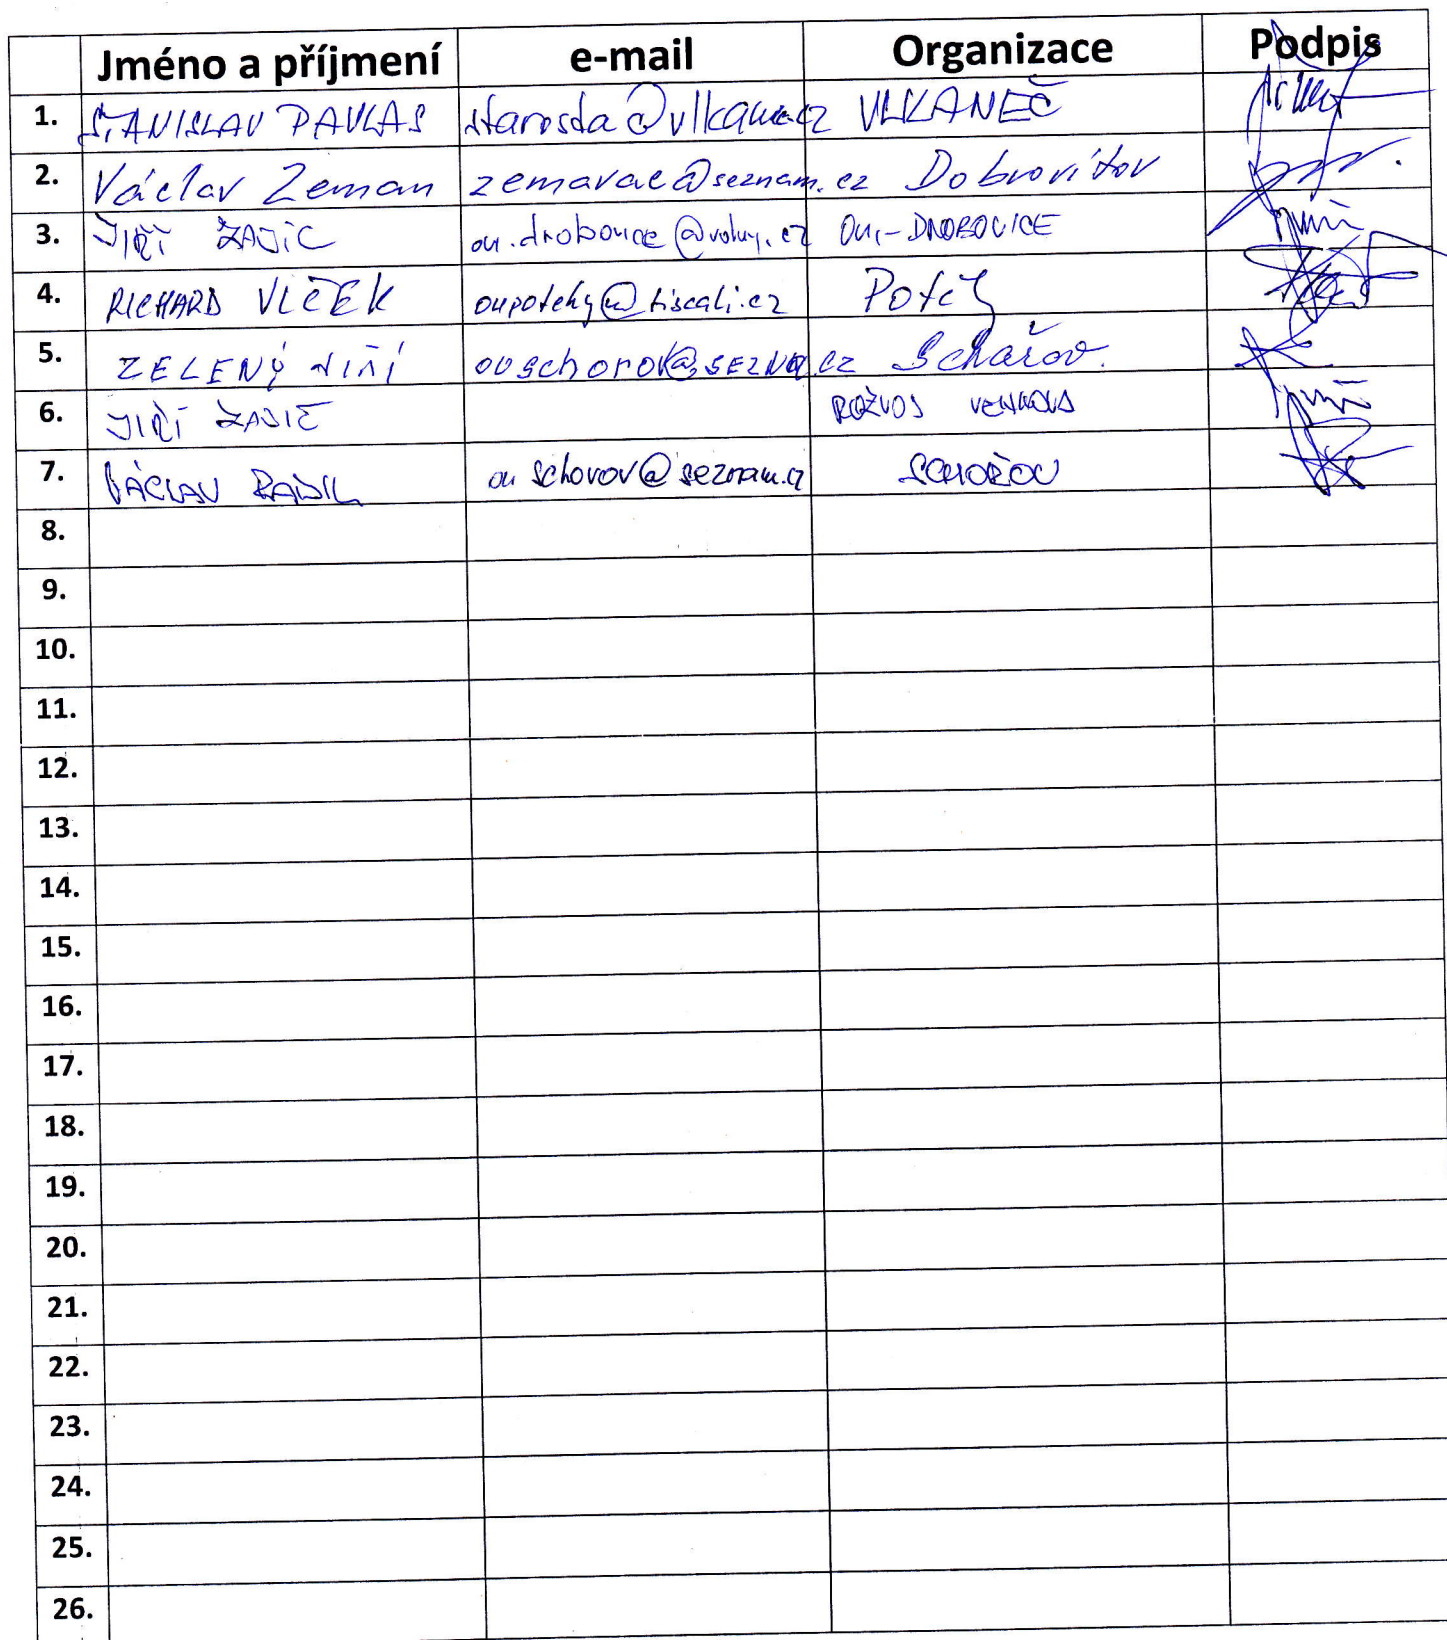 Jméno a příjmení e-mail Organizace Podpis
1. STANISLAV PAVLAS starosta@vlkanec.cz VLKANEČ
2. Václav Zeman zemavac@seznam.cz Dobrovítov
3. JIŘÍ ZAJÍC ou.drobovice@volny.cz OU,-DROBOVICE
4. RICHARD VLČEK oupotehy@tiscali.cz
5. ZELENÝ JIŘÍ
6. JIŘÍ ZAJÍC ROZVOJ VENKOVA
7. VÁCLAV ou schorov@seznam.cz SCHOŘOV
8.
9.
10.
11.
12.
13.
14.
15.
16.
17.
18.
19.
20.
21.
22.
23.
24.
25.
26.